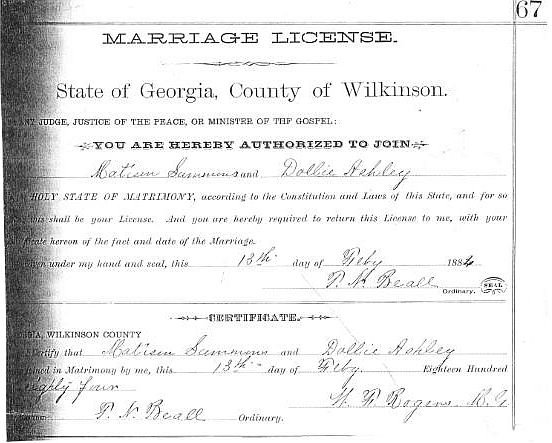 67
MARRIAGE LICENSE.
State of Georgia, County of Wilkinson.
ANY JUDGE, JUSTICE OF THE PEACE, OR MINISTER OF THE GOSPEL:
YOU ARE HEREBY AUTHORIZED TO JOIN
Matison Summons and Dollie Ashley
HOLY STATE OF MATRIMONY, according to the Constitution and Laws of this State, and for so
this shall be your License. And you are hereby required to return this License to me, with your
hereon of the fact and date of the Marriage.
under my hand and seal, this 13th day of Feby 1884
P. N. Beall
Ordinary. SEAL
CERTIFICATE.
WILKINSON COUNTY
Certify that Matison Summons and Dollie Ashley
joined in Matrimony by me, this 13th day of Feby. Eighteen Hundred
eighty four
W. F. Rogers
P. N. Beall Ordinary.